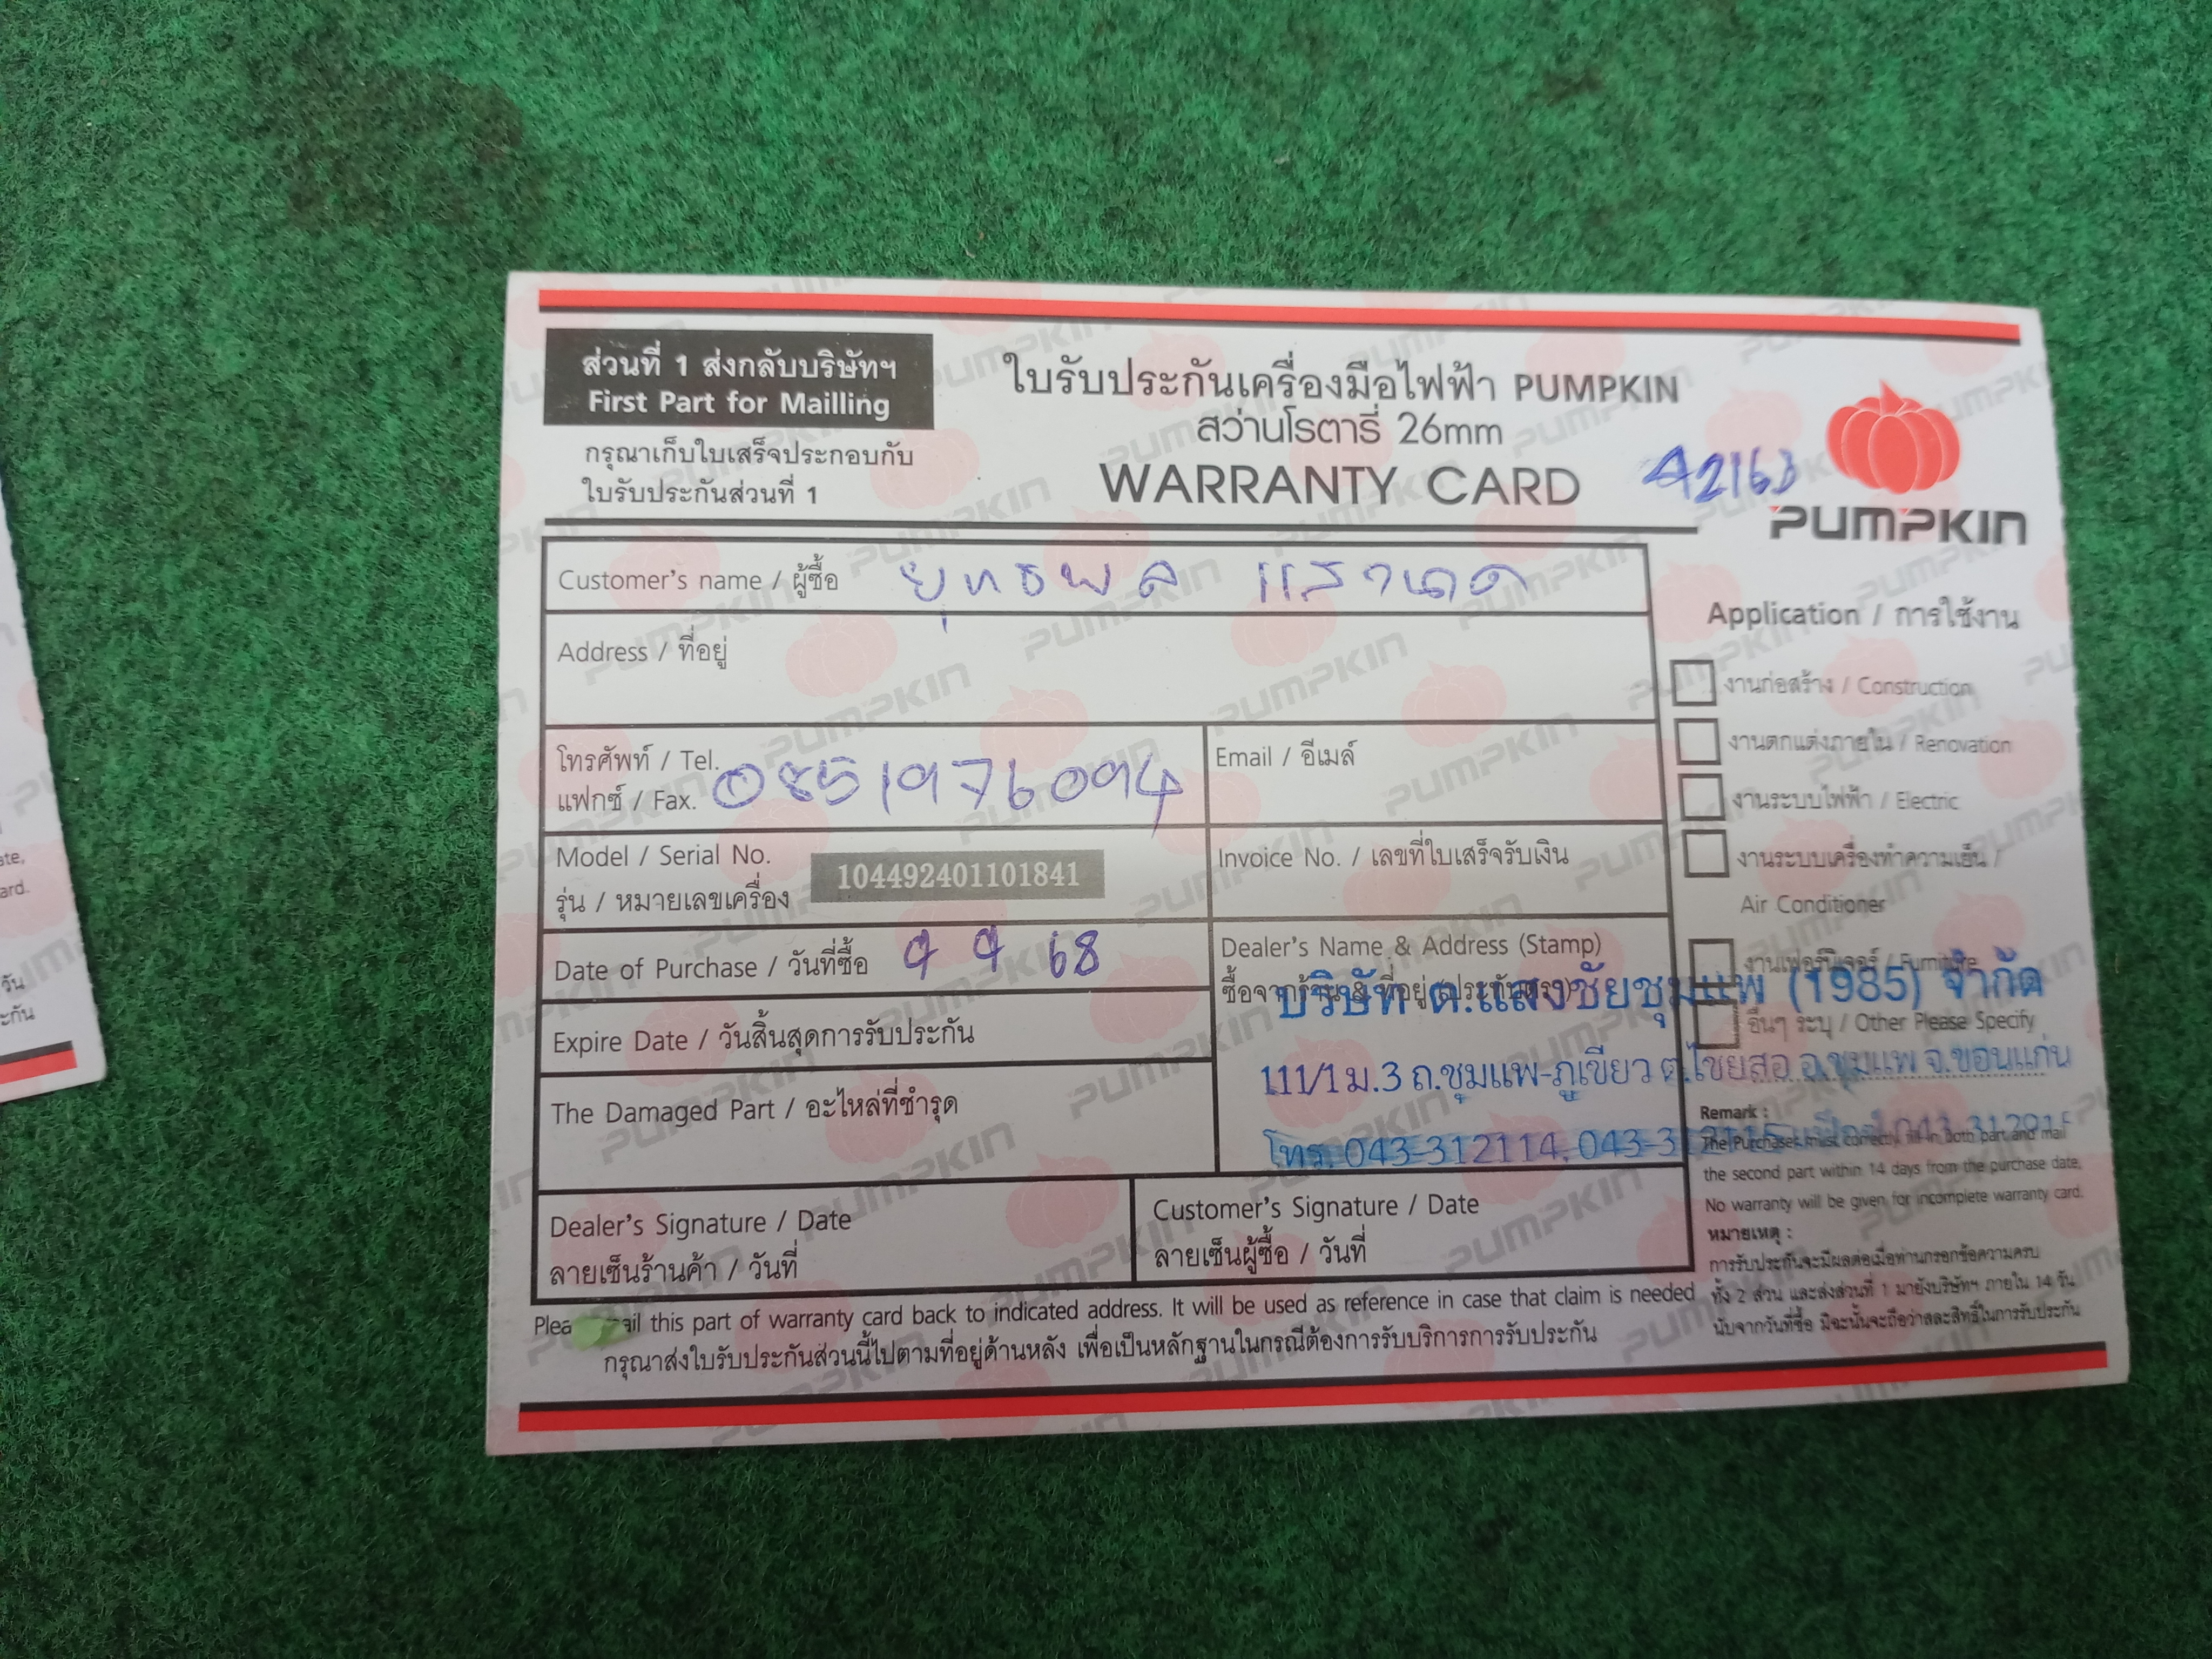 ส่วนที่ 1 ส่งกลับบริษัทฯ
First Part for Mailling
กรุณาเก็บใบเสร็จประกอบกับ
ใบรับประกันส่วนที่ 1
ใบรับประกันเครื่องมือไฟฟ้า PUMPKIN
สว่านโรตารี่ 26mm
WARRANTY CARD
42163
PUMPKIN
Customer's name / ผู้ซื้อ ยุทธพล
Address / ที่อยู่
โทรศัพท์ / Tel.
แฟกซ์ / Fax. 0851976094
Email / อีเมล์
Model / Serial No.
รุ่น / หมายเลขเครื่อง 104492401101841
Invoice No. / เลขที่ใบเสร็จรับเงิน
Date of Purchase / วันที่ซื้อ 9 9 68
Expire Date / วันสิ้นสุดการรับประกัน
The Damaged Part / อะไหล่ที่ชำรุด
Dealer's Name & Address (Stamp)
ซื้อจากร้าน & ที่อยู่ (ประทับตรา)
บริษัท ต.แสงชัยชุมแพ (1985) จำกัด
111/1 ม.3 ถ.ชุมแพ-ภูเขียว ต.ไชยสอ อ.ชุมแพ จ.ขอนแก่น
โทร. 043-312114,
Dealer's Signature / Date
ลายเซ็นร้านค้า / วันที่
Customer's Signature / Date
ลายเซ็นผู้ซื้อ / วันที่
Application / การใช้งาน
งานก่อสร้าง / Construction
งานตกแต่งภายใน / Renovation
งานระบบไฟฟ้า / Electric
งานระบบเครื่องทำความเย็น /
Air Conditioner
งานเฟอร์นิเจอร์ / Furniture
อื่นๆ ระบุ / Other Please Specify
Remark :
The Purchaser must correctly fill in both part and mail
the second part within 14 days from the purchase date,
No warranty will be given for incomplete warranty card.
หมายเหตุ :
การรับประกันจะมีผลต่อเมื่อท่านกรอกข้อความครบ
ทั้ง 2 ส่วน และส่งส่วนที่ 1 มายังบริษัทฯ ภายใน 14 วัน
นับจากวันที่ซื้อ มิฉะนั้นจะถือว่าสละสิทธิ์ในการรับประกัน
this part of warranty card back to indicated address. It will be used as reference in case that claim is needed
กรุณาส่งใบรับประกันส่วนนี้ไปตามที่อยู่ด้านหลัง เพื่อเป็นหลักฐานในกรณีต้องการรับบริการการรับประกัน